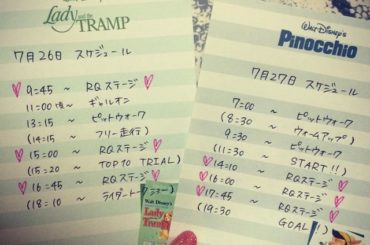 WALT DISNEY'S
Lady and the
TRAMP
7月26日 スケジュール
9:45 ~ RQステージ
11:00頃~ ギャルオン
13:15 ~ ピットウォーク
(14:15 ~ フリー走行)
15:00 ~ RQステージ
(15:20 ~ TOP10 TRIAL)
16:45 ~ RQステージ
(18:10 ~ ライダートークショー)
Walt Disney's
Lady
TRAMP
WALT DISNEY'S
Pinocchio
7月27日 スケジュール
7:00 ~ ピットウォーク
(8:30 ~ ウォームアップ)
9:30 ~ ピットウォーク
(11:30 ~ START!!)
14:10 ~ RQステージ
16:00 ~ RQステージ
17:45 ~ RQステージ
(19:30 GOAL!)